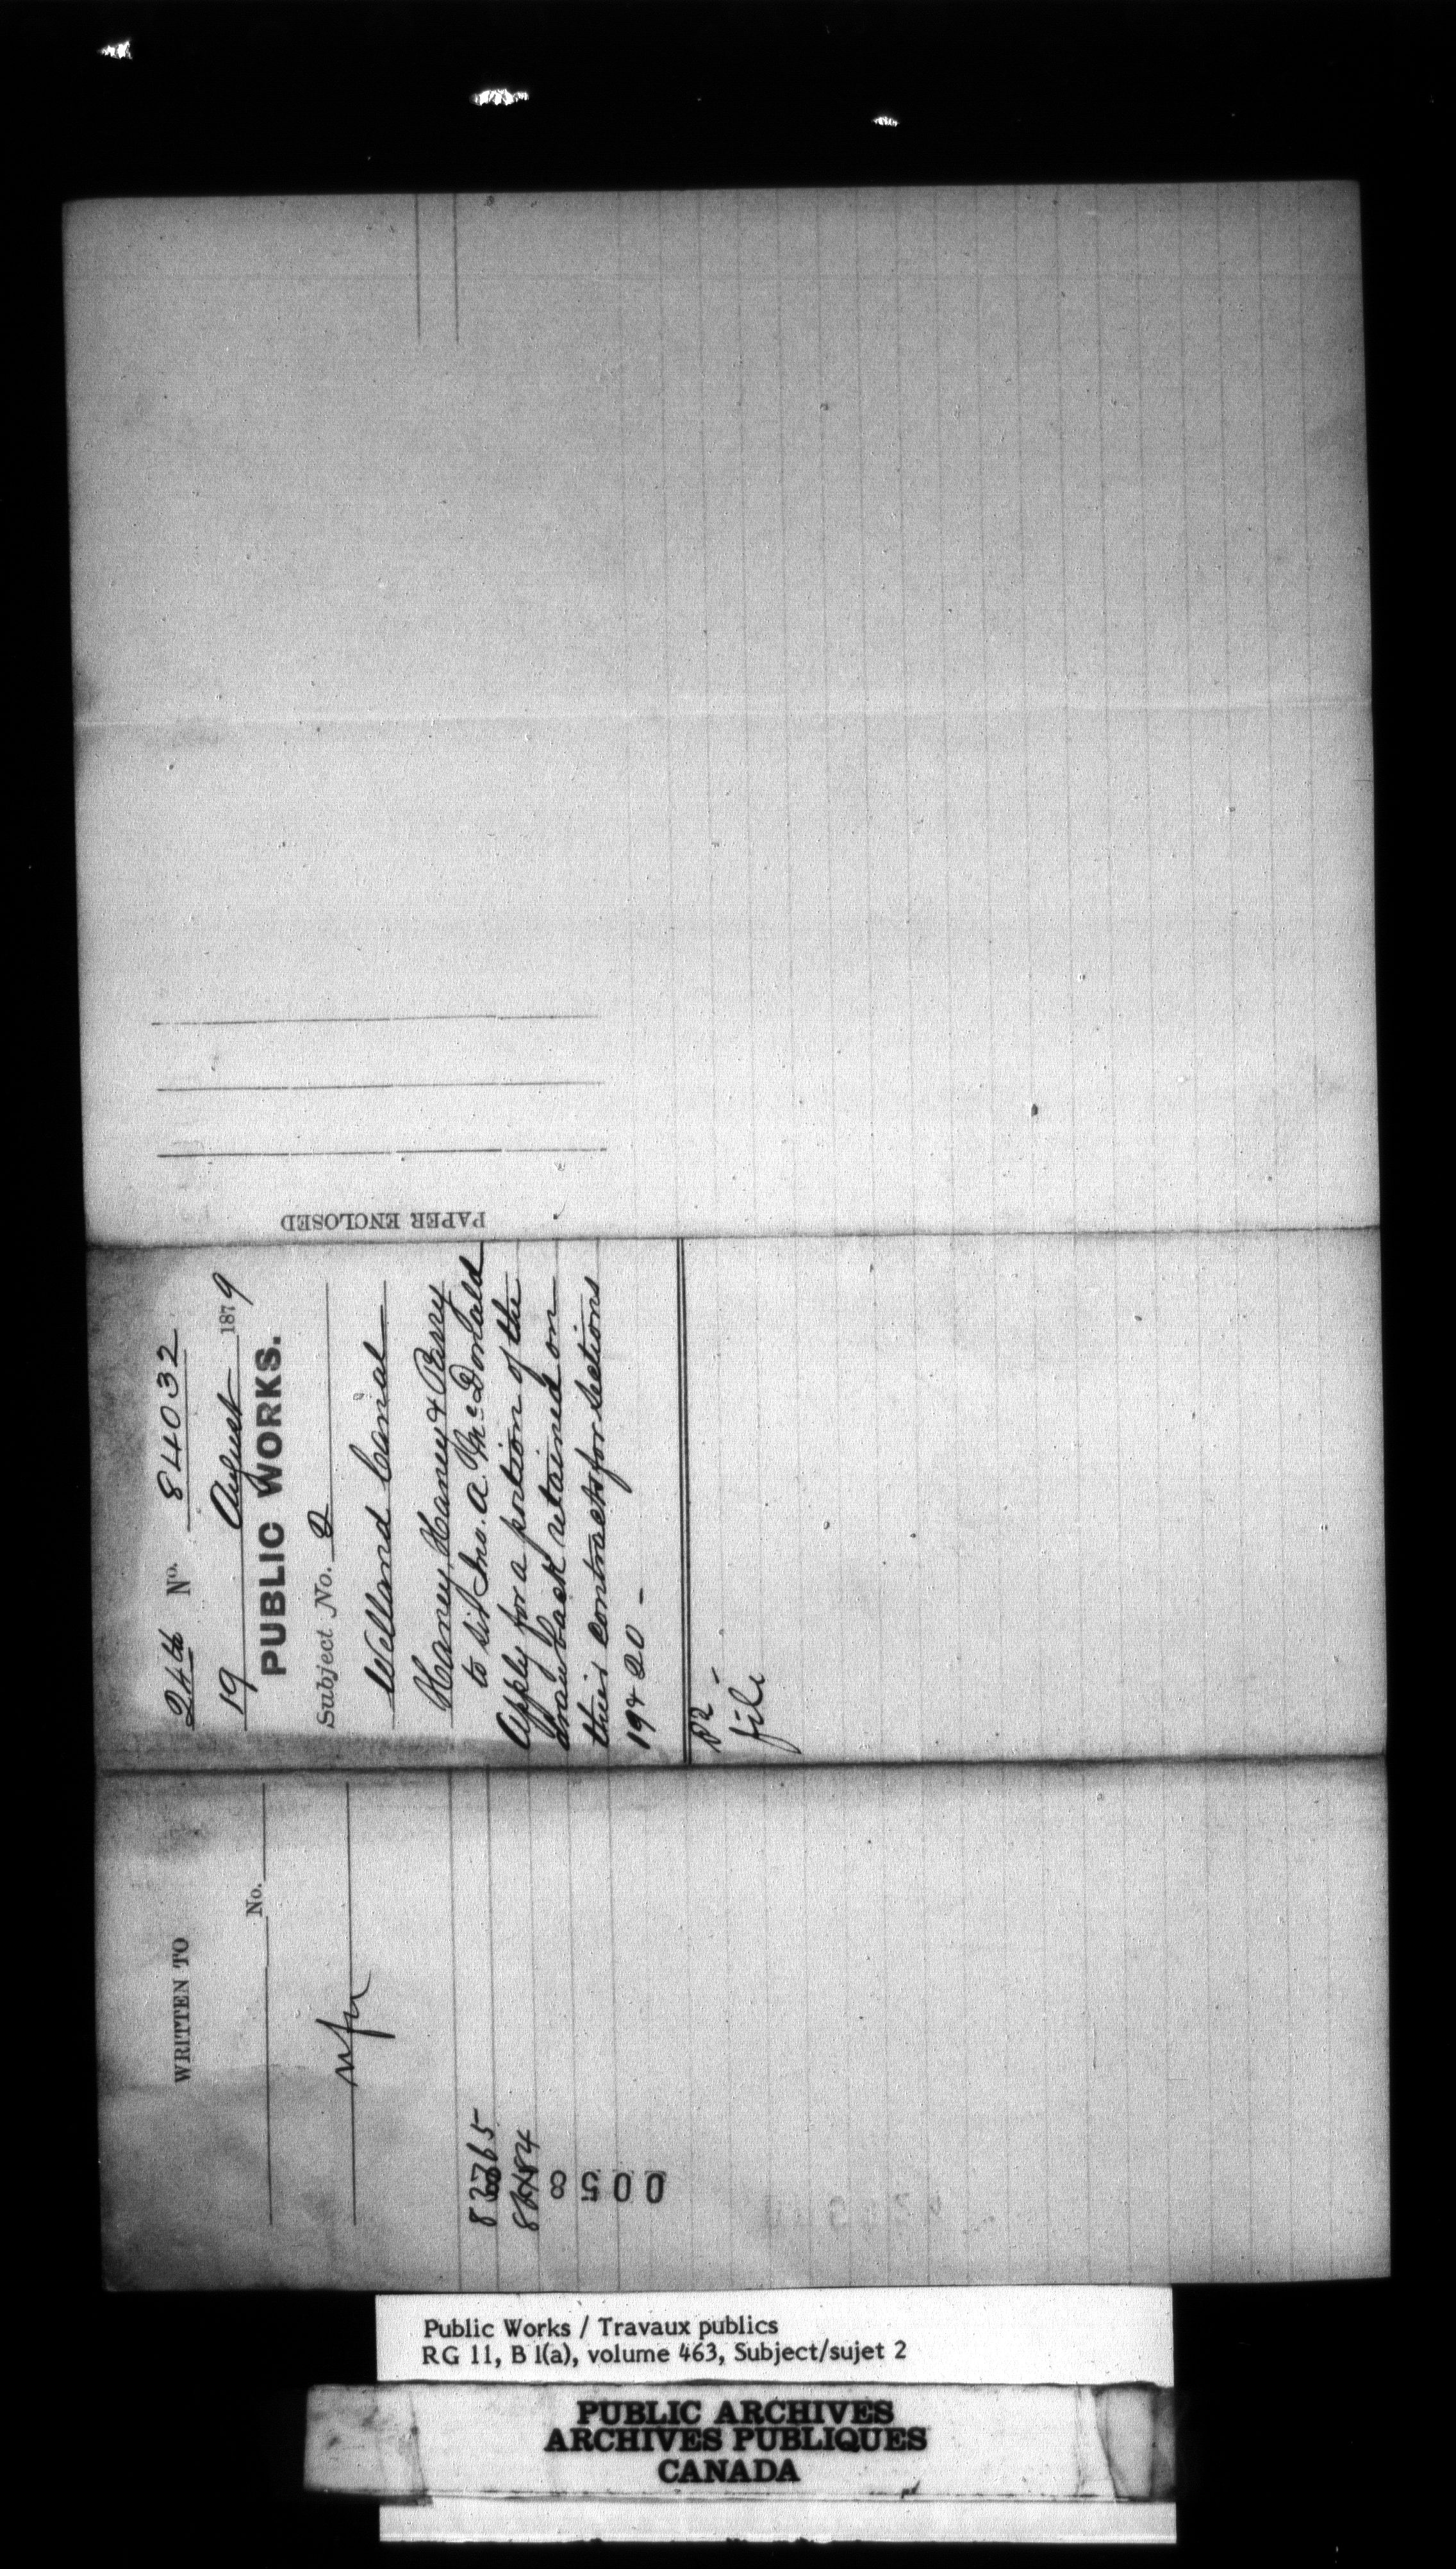 PAPER ENCLOSED
24th No. 84032
19 August 1879
PUBLIC WORKS.
Subject No. 2
Welland Canal
Haney, Haney & Perry
to Sir Jno. A. McDonald
Apply for a portion of the
drawback retained on
their contracts for Sections
19 & 20 -
file
WRITTEN TO
No.
0058
Public Works / Travaux publics
RG 11, B 1(a), volume 463, Subject/sujet 2
PUBLIC ARCHIVES
ARCHIVES PUBLIQUES
CANADA